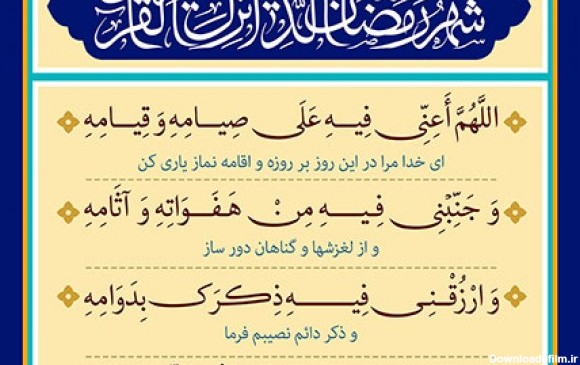 شهر رمضان الذی انزل فیه القرآن
اللَّهُمَّ أَعِنِّی فِیهِ عَلَی صِیَامِهِ وَ قِیَامِهِ
ای خدا مرا در این روز بر روزه و اقامه نماز یاری کن
وَ جَنِّبْنِی فِیهِ مِنْ هَفَوَاتِهِ وَ آثَامِهِ
و از لغزشها و گناهان دور ساز
وَ ارْزُقْنِی فِیهِ ذِکْرَکَ بِدَوَامِهِ
و ذکر دائم نصیبم فرما
Downloadefilm.ir